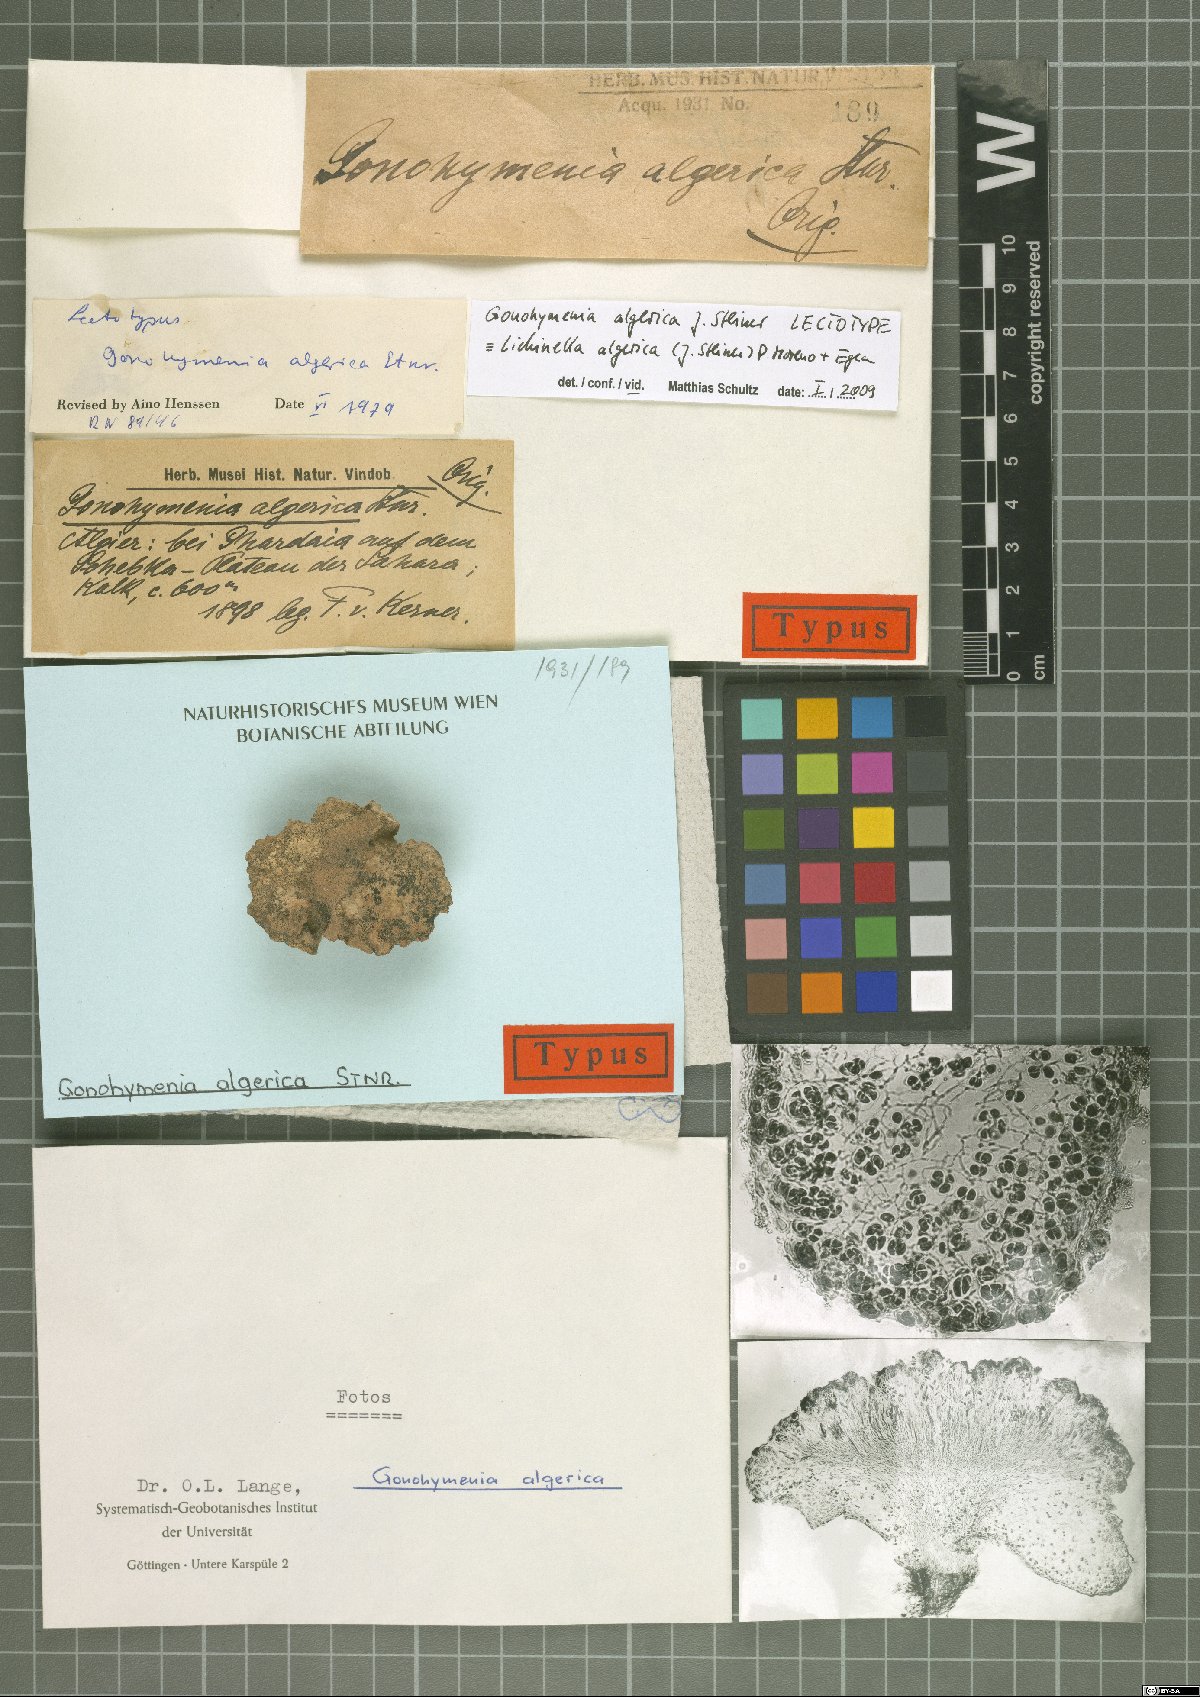 HERB. MUS. HIST. NATUR.
Acqu. 1931 No. 189
Gonohymenia algerica Stnr.
Orig.
Lectotypus
Gonohymenia algerica Stnr.
Revised by Aino Henssen Date VI 1979
Gonohymenia algerica J. Steiner LECTOTYPE
≡ Lichinella algerica (J. Steiner) P Moreno + Egea
det. / conf. / vid. Matthias Schultz date: I / 2009
Herb. Musei Hist. Natur. Vindob. Orig.
Gonohymenia algerica Stnr.
Algier: bei Ghardaia auf dem
Schebka-Plateau der Sahara;
Kalk, c. 600 m
1898 leg. F. v. Kerner.
Typus
W
0 1 2 3 4 5 6 7 8 9 10
cm
copyright reserved
1931/189
NATURHISTORISCHES MUSEUM WIEN
BOTANISCHE ABTEILUNG
Typus
Gonohymenia algerica STNR.
Fotos
=======
Dr. O.L. Lange,
Gonohymenia algerica
Systematisch-Geobotanisches Institut
der Universität
Göttingen · Untere Karspüle 2
BY-SA